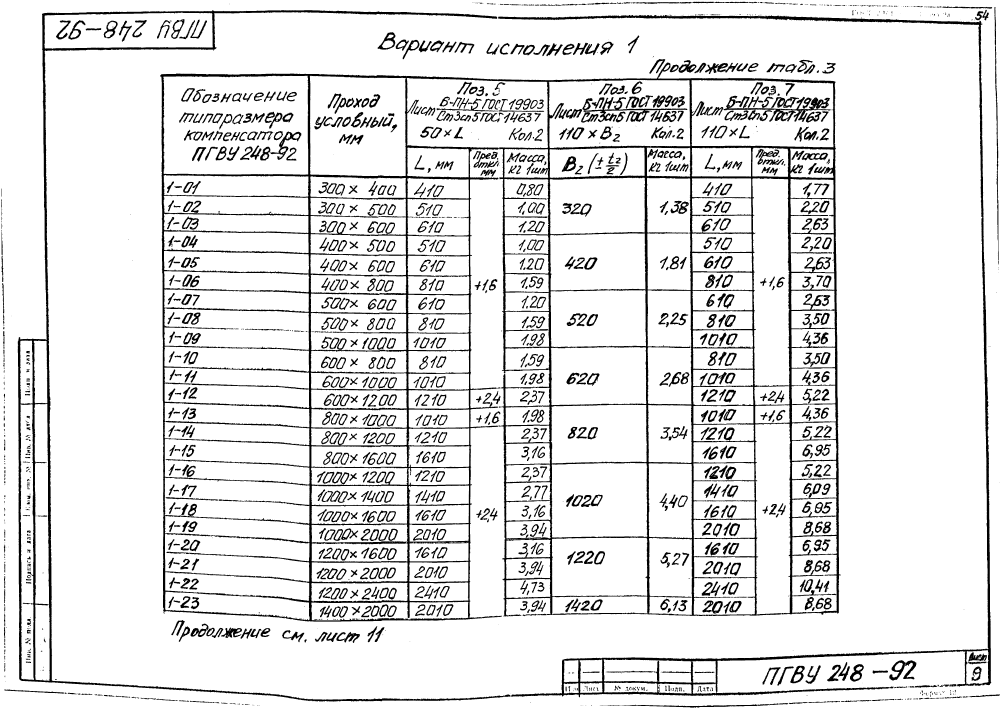 54
ПГВУ 248-92
Вариант исполнения 1
Продолжение табл. 3
Обозначение типоразмера компенсатора ПГВУ 248-92 | Проход условный, мм | Поз. 5 Лист Б-ПН-5 ГОСТ 19903 / Ст3сп5 ГОСТ 14637 50 × L Кол. 2 | Поз. 6 Лист Б-ПН-5 ГОСТ 19903 / Ст3сп5 ГОСТ 14637 110 × B₂ Кол. 2 | Поз. 7 Лист Б-ПН-5 ГОСТ 19903 / Ст3сп5 ГОСТ 14637 110 × L Кол. 2
L, мм | Пред. откл. мм | Масса, кг 1шт | B₂ (± t₂/2) | Масса, кг 1шт | L, мм | Пред. откл. мм | Масса, кг 1шт
1-01 300 × 400 410 0,80 410 1,77
1-02 300 × 500 510 1,00 320 1,38 510 2,20
1-03 300 × 600 610 1,20 610 2,63
1-04 400 × 500 510 1,00 510 2,20
1-05 400 × 600 610 1,20 420 1,81 610 2,63
1-06 400 × 800 810 +1,6 1,59 810 +1,6 3,70
1-07 500 × 600 610 1,20 610 2,63
1-08 500 × 800 810 1,59 520 2,25 810 3,50
1-09 500 × 1000 1010 1,98 1010 4,36
1-10 600 × 800 810 1,59 810 3,50
1-11 600 × 1000 1010 1,98 620 2,68 1010 4,36
1-12 600 × 1200 1210 +2,4 2,37 1210 +2,4 5,22
1-13 800 × 1000 1010 +1,6 1,98 1010 +1,6 4,36
1-14 800 × 1200 1210 2,37 820 3,54 1210 5,22
1-15 800 × 1600 1610 3,16 1610 6,95
1-16 1000 × 1200 1210 2,37 1210 5,22
1-17 1000 × 1400 1410 2,77 1020 4,40 1410 6,09
1-18 1000 × 1600 1610 +2,4 3,16 1610 +2,4 6,95
1-19 1000 × 2000 2010 3,94 2010 8,68
1-20 1200 × 1600 1610 3,16 1610 6,95
1-21 1200 × 2000 2010 3,94 1220 5,27 2010 8,68
1-22 1200 × 2400 2410 4,73 2410 10,41
1-23 1400 × 2000 2010 3,94 1420 6,13 2010 8,68
Продолжение см. лист 11
Лист № докум. Подп. Дата
ПГВУ 248-92
Лист
9